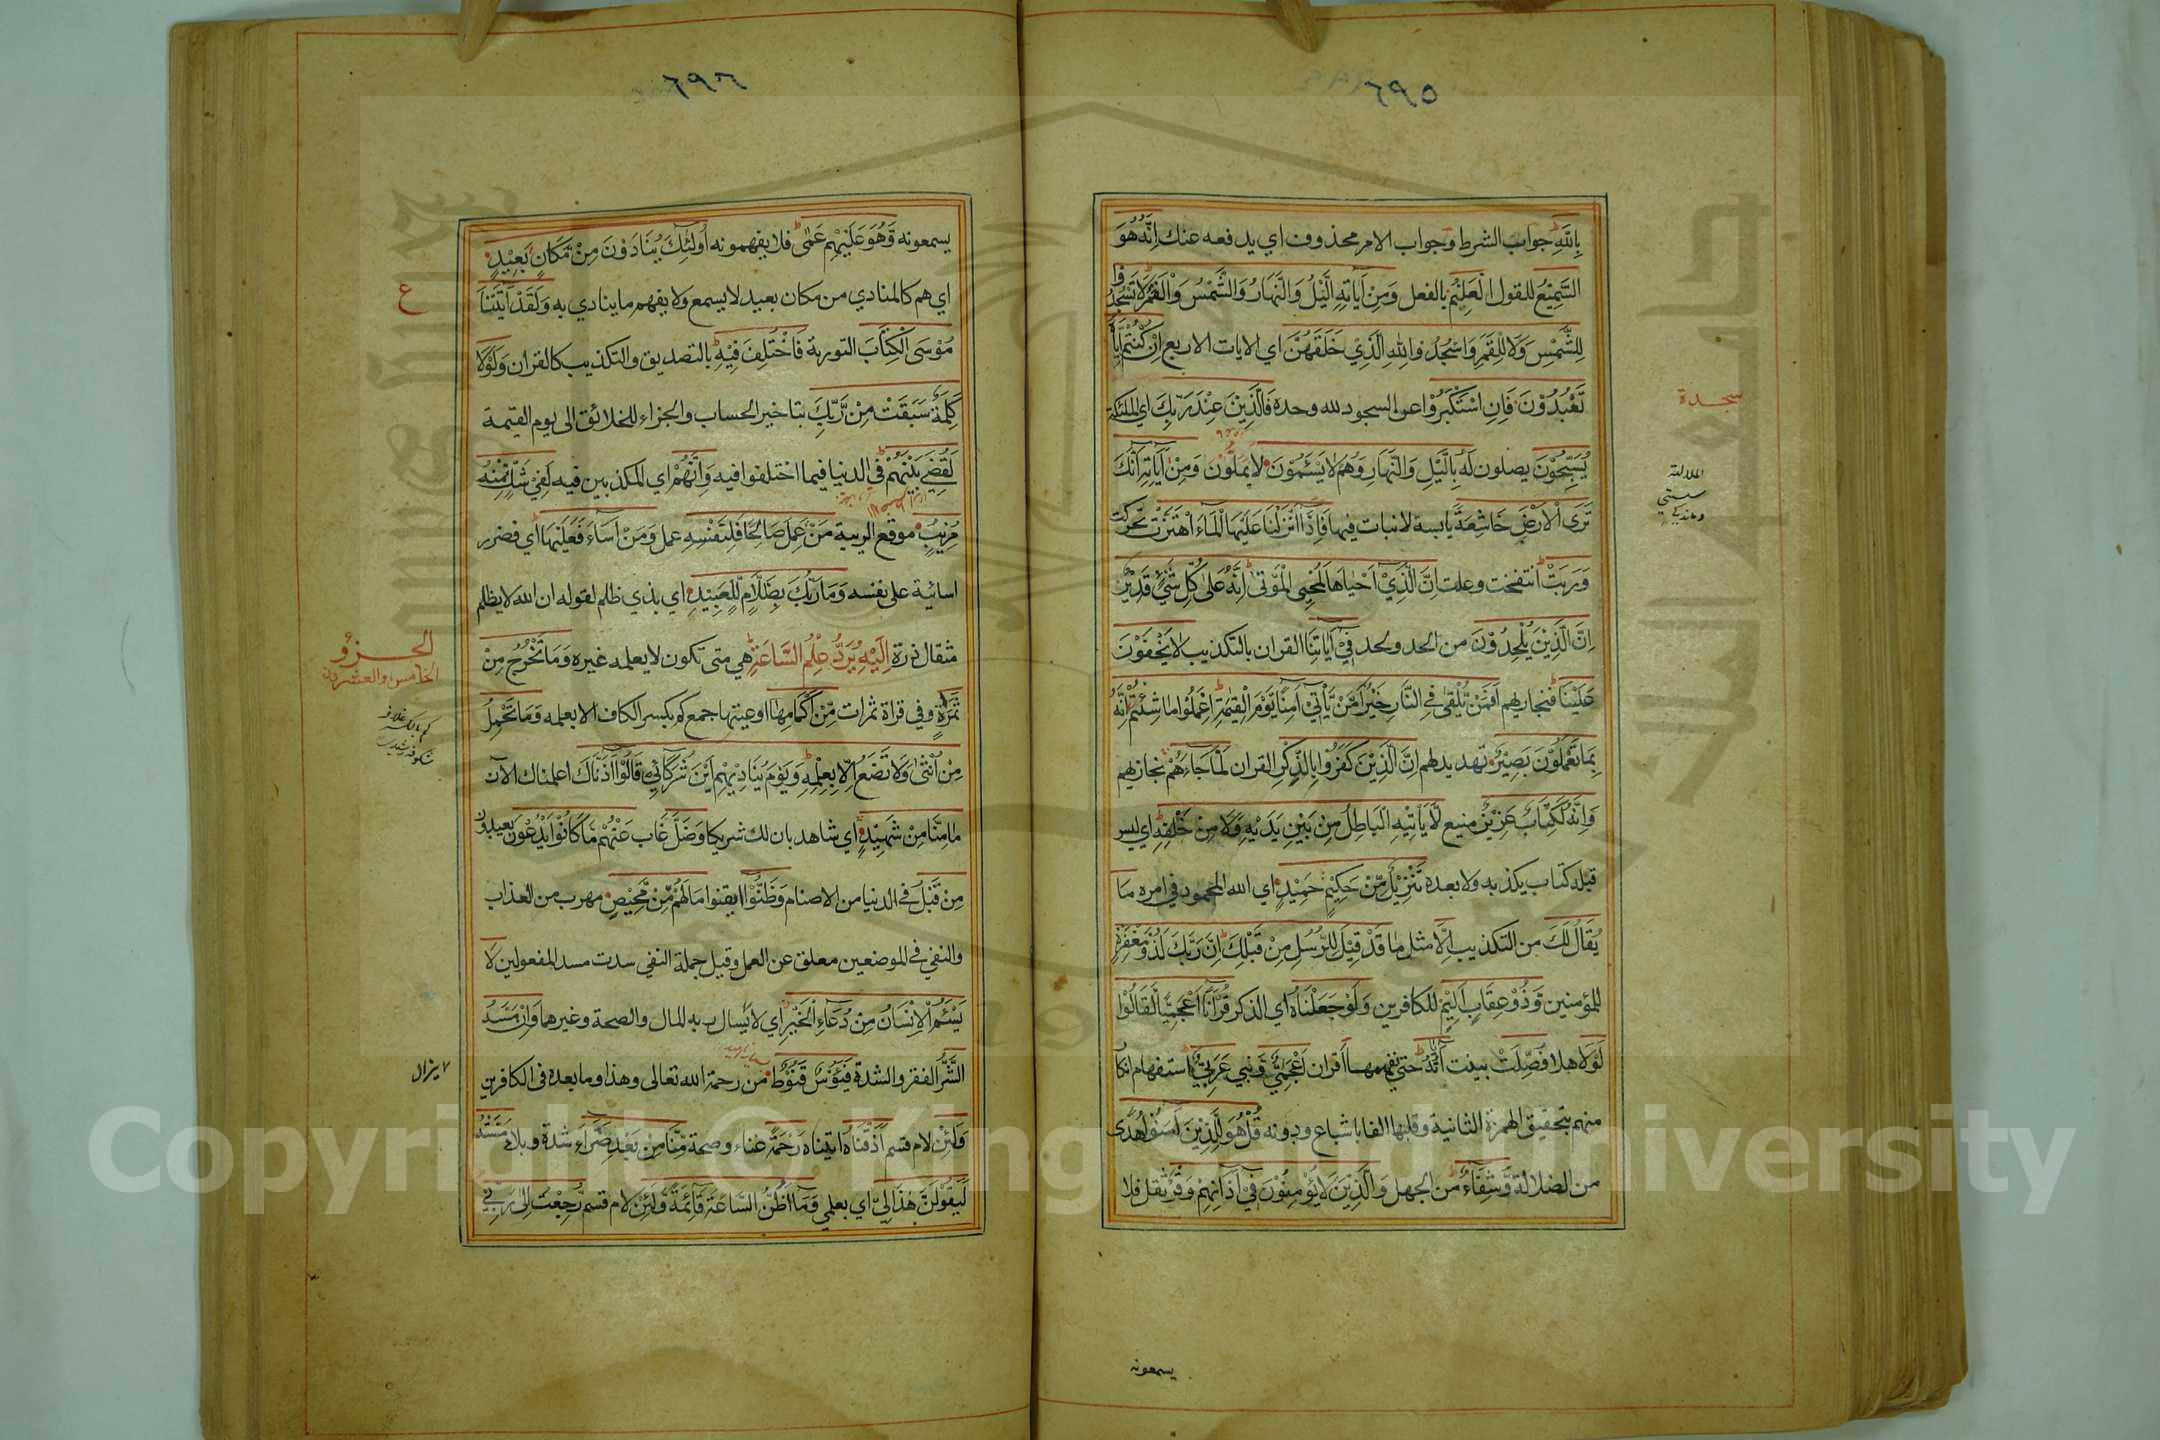 ٦٩٥
بِاللّٰهِ جواب الشرط وجواب الامر محذوف اي يدفعه عنك اِنَّهُ هُوَ
السَّمِيْعُ للقول الْعَلِيْمُ بالفعل وَمِنْ آيَاتِهِ الَّيْلُ وَالنَّهَارُ وَالشَّمْسُ وَالْقَمَرُ لَا تَسْجُدُوا
لِلشَّمْسِ وَلَا لِلْقَمَرِ وَاسْجُدُوا لِلّٰهِ الَّذِيْ خَلَقَهُنَّ اي الايات الاربع اِنْ كُنْتُمْ اِيَّاهُ
تَعْبُدُوْنَ فَاِنِ اسْتَكْبَرُوْا عن السجود لله وحده فَالَّذِيْنَ عِنْدَ رَبِّكَ اي الملئكة
يُسَبِّحُوْنَ يصلون لَهُ بِالَّيْلِ وَالنَّهَارِ وَهُمْ لَا يَسْئَمُوْنَ لا يملون وَمِنْ آيَاتِهِ اَنَّكَ
تَرَى الْاَرْضَ خَاشِعَةً يابسة لانبات فيها فَاِذَا اَنْزَلْنَا عَلَيْهَا الْمَاءَ اهْتَزَّتْ تحركت
وَرَبَتْ انتفخت وعلت اِنَّ الَّذِيْ اَحْيَاهَا لَمُحْيِي الْمَوْتٰى اِنَّهُ عَلٰى كُلِّ شَيْءٍ قَدِيْرٌ
اِنَّ الَّذِيْنَ يُلْحِدُوْنَ من الحد ولحد فِيْ آيَاتِنَا القران بالتكذيب لَا يَخْفَوْنَ
عَلَيْنَا فنجازيهم اَفَمَنْ يُلْقٰى فِي النَّارِ خَيْرٌ اَمْ مَّنْ يَّأْتِيْ آمِنًا يَوْمَ الْقِيٰمَةِ اعْمَلُوْا مَا شِئْتُمْ اِنَّهُ
بِمَا تَعْمَلُوْنَ بَصِيْرٌ تهديد لهم اِنَّ الَّذِيْنَ كَفَرُوْا بِالذِّكْرِ القران لَمَّا جَاءَهُمْ نجازيهم
وَاِنَّهُ لَكِتَابٌ عَزِيْزٌ منيع لَّا يَأْتِيْهِ الْبَاطِلُ مِنْ بَيْنِ يَدَيْهِ وَلَا مِنْ خَلْفِهِ اي ليس
قبله كتاب يكذبه ولا بعده تَنْزِيْلٌ مِّنْ حَكِيْمٍ حَمِيْدٍ اي الله المحمود في امره مَا
يُقَالُ لَكَ من التكذيب اِلَّا مثل مَا قَدْ قِيْلَ لِلرُّسُلِ مِنْ قَبْلِكَ اِنَّ رَبَّكَ لَذُوْ مَغْفِرَةٍ
للمؤمنين وَّذُوْ عِقَابٍ اَلِيْمٍ للكافرين وَلَوْ جَعَلْنَاهُ اي الذكر قُرْآنًا اَعْجَمِيًّا لَّقَالُوْا
لَوْلَا هلا فُصِّلَتْ بينت آيَاتُهُ حتى نفهمها أقران اَعْجَمِيٌّ وَّ نبي عَرَبِيٌّ استفهام انكار
منهم بتحقيق الهمزة الثانية وقلبها الفا باشباع ودونه قُلْ هُوَ لِلَّذِيْنَ آمَنُوْا هُدًى
من الضلالة وَّشِفَاءٌ من الجهل وَالَّذِيْنَ لَا يُؤْمِنُوْنَ فِيْ آذَانِهِمْ وَقْرٌ ثقل فلا
يسمعونه
سجدة
٦٩٦
يسمعونه وَّهُوَ عَلَيْهِمْ عَمًى فلا يفهمونه اُولٰئِكَ يُنَادَوْنَ مِنْ مَّكَانٍ بَعِيْدٍ
اي هم كالمنادي من مكان بعيد لا يسمع ولا يفهم ما ينادي به وَلَقَدْ آتَيْنَا
مُوْسَى الْكِتَابَ التورية فَاخْتُلِفَ فِيْهِ بالتصديق والتكذيب كالقران وَلَوْلَا
كَلِمَةٌ سَبَقَتْ مِنْ رَّبِّكَ بتاخير الحساب والجزاء للخلائق الى يوم القيمة
لَقُضِيَ بَيْنَهُمْ في الدنيا فيما اختلفوا فيه وَاِنَّهُمْ اي المكذبين فيه لَفِيْ شَكٍّ مِّنْهُ
مُرِيْبٍ موقع الريبة مَنْ عَمِلَ صَالِحًا فَلِنَفْسِهِ عمل وَمَنْ اَسَاءَ فَعَلَيْهَا اي فضرر
اسائية على نفسه وَمَا رَبُّكَ بِظَلَّامٍ لِّلْعَبِيْدِ اي بذي ظلم لقوله ان الله لا يظلم
مثقال ذرة اِلَيْهِ يُرَدُّ عِلْمُ السَّاعَةِ هي متى تكون لا يعلمه غيره وَمَا تَخْرُجُ مِنْ
ثَمَرَةٍ وفي قراة ثمرات مِّنْ اَكْمَامِهَا اوعيتها جمع كم بكسر الكاف الا بعلمه وَمَا تَحْمِلُ
مِنْ اُنْثٰى وَلَا تَضَعُ اِلَّا بِعِلْمِهِ وَيَوْمَ يُنَادِيْهِمْ اَيْنَ شُرَكَائِيْ قَالُوْا آذَنَّاكَ اعلمناك الآن
مَا مِنَّا مِنْ شَهِيْدٍ اي شاهد بان لك شريكا وَضَلَّ غاب عَنْهُمْ مَّا كَانُوْا يَدْعُوْنَ يعبدون
مِنْ قَبْلُ في الدنيا من الاصنام وَظَنُّوْا ايقنوا مَا لَهُمْ مِّنْ مَّحِيْصٍ مهرب من العذاب
والنفي في الموضعين معلق عن العمل وقيل جملة النفي سدت مسد المفعولين لَا
يَسْئَمُ الْاِنْسَانُ مِنْ دُعَاءِ الْخَيْرِ اي لا يسال ربه المال والصحة وغيرهما وَاِنْ مَّسَّهُ
الشَّرُّ الفقر والشدة فَيَئُوْسٌ قَنُوْطٌ من رحمة الله تعالى وهذا وما بعده في الكافرين
وَلَئِنْ لام قسم اَذَقْنَاهُ اتيناه رَحْمَةً غناء وصحة مِّنَّا مِنْ بَعْدِ ضَرَّاءَ شدة وبلاء مَسَّتْهُ
لَيَقُوْلَنَّ هٰذَا لِيْ اي بعلمي وَمَا اَظُنُّ السَّاعَةَ قَائِمَةً وَّلَئِنْ لام قسم رُّجِعْتُ اِلٰى رَبِّيْ
ع
الجزؤ
الخامس والعشرون
لا يزال
Copyright © King Saud University